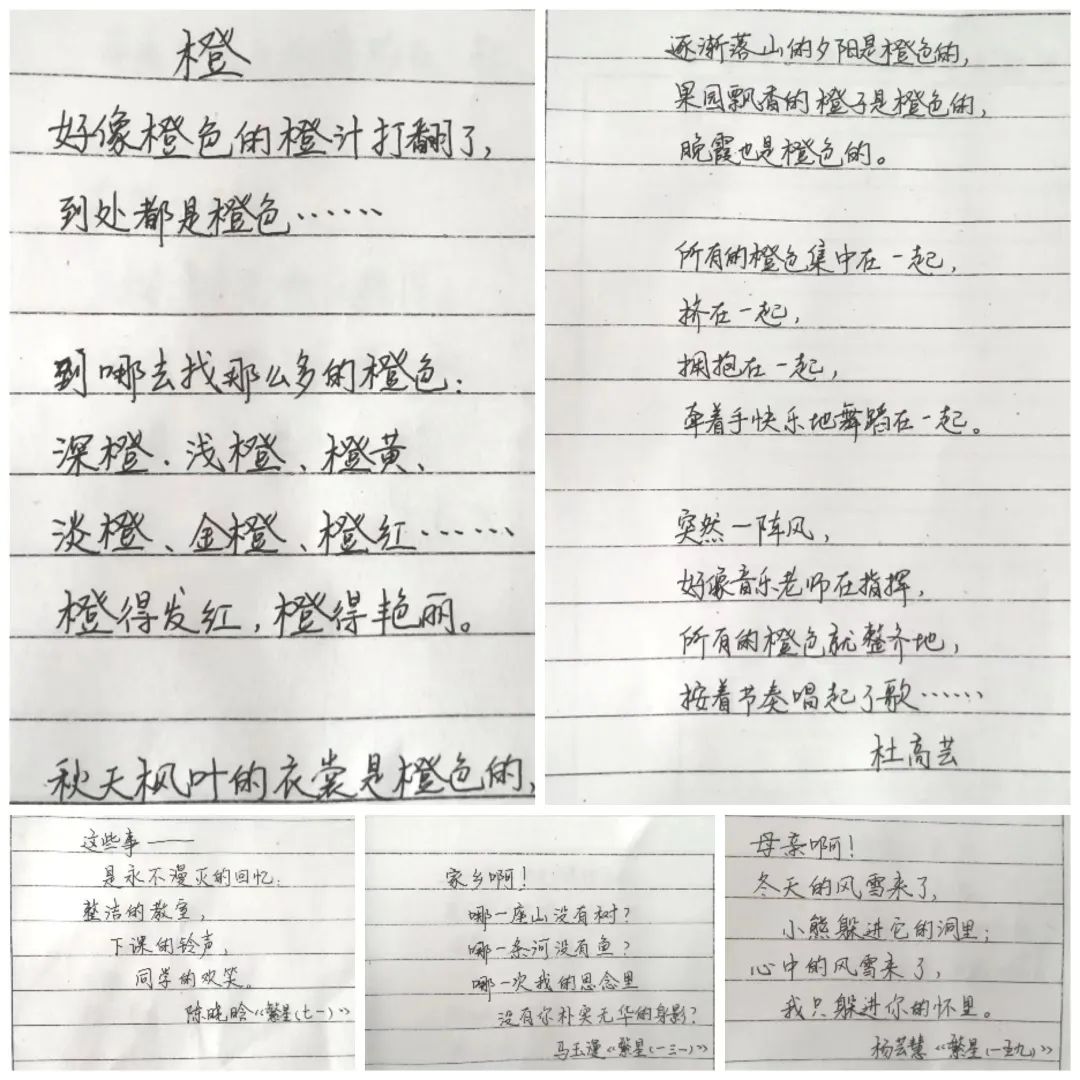 橙
好像橙色的橙计打翻了，
到处都是橙色……
到哪去找那么多的橙色：
深橙、浅橙、橙黄、
淡橙、金橙、橙红……
橙得发红，橙得艳丽。
秋天枫叶的衣裳是橙色的，
逐渐落山的夕阳是橙色的，
果园飘香的橙子是橙色的，
晚霞也是橙色的。
所有的橙色集中在一起，
挤在一起，
拥抱在一起，
牵着手快乐地舞蹈在一起。
突然一阵风，
好像音乐老师在指挥，
所有的橙色就整齐地，
按着节奏唱起了歌……
杜高芸
这些事——
是永不漫灭的回忆：
整洁的教室，
下课的铃声，
同学的欢笑。
陈晓晗《繁星（七一）》
家乡啊！
哪一座山没有树？
哪一条河没有鱼？
哪一次我的思念里
没有你朴实无华的身影？
马玉漫《繁星（一三一）》
母亲啊！
冬天的风雪来了，
小熊躲进它的洞里；
心中的风雪来了，
我只躲进你的怀里。
杨芸慧《繁星（一五九）》